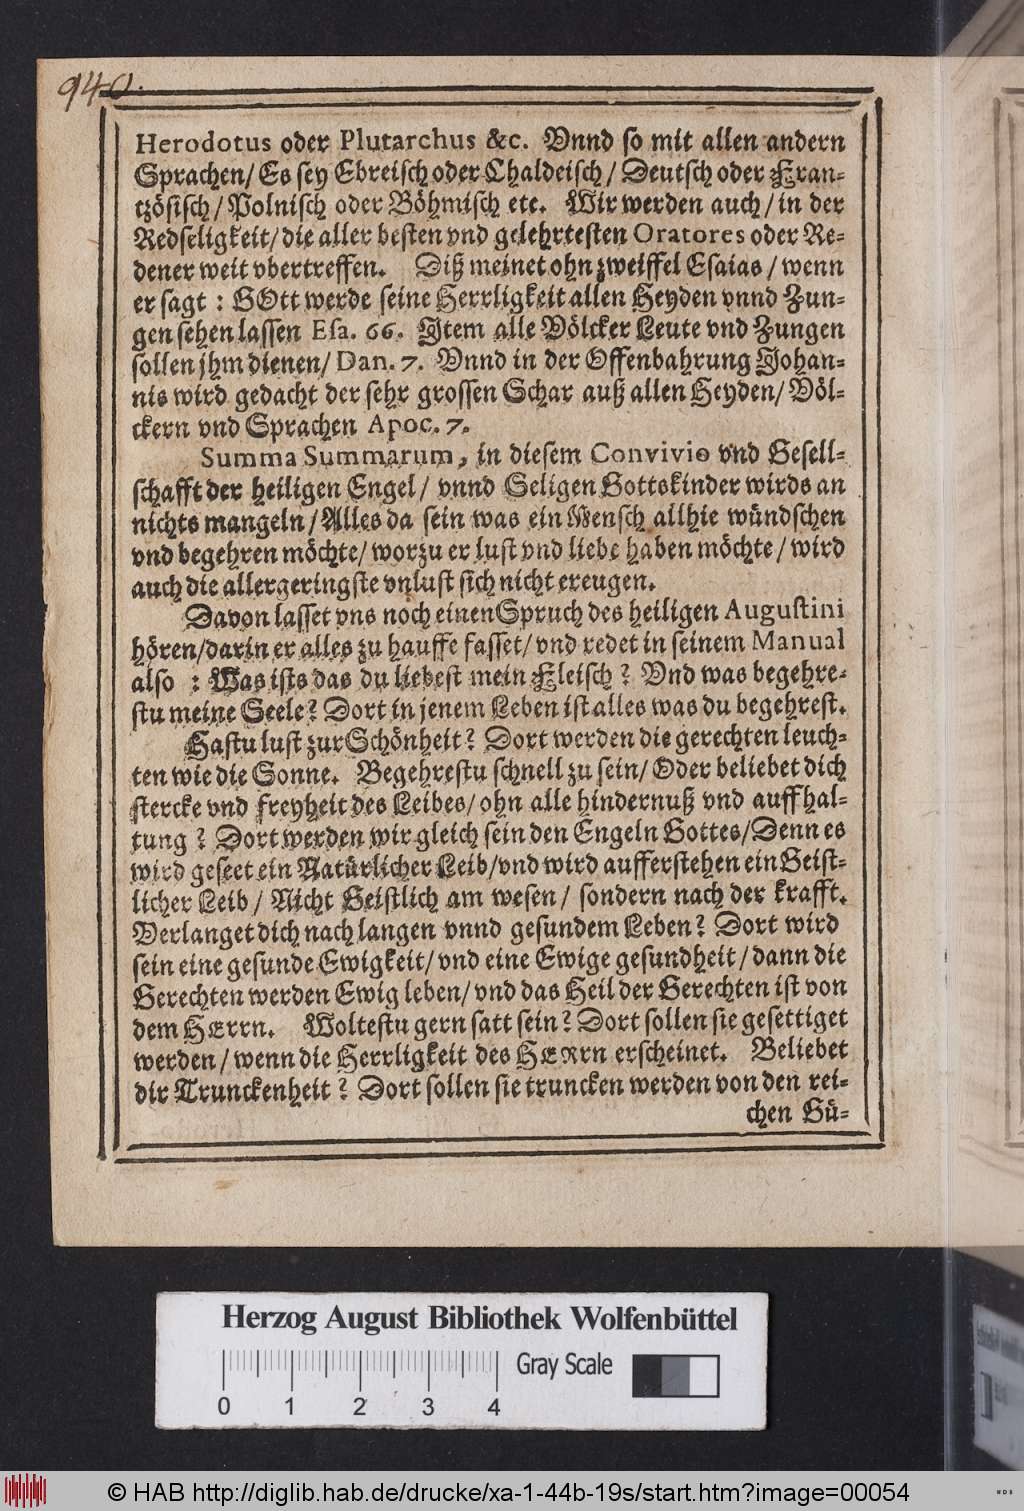 940.
Herodotus oder Plutarchus &c. Vnnd so mit allen andern
Sprachen/ Es sey Ebreisch oder Chaldeisch/ Deutsch oder Fran-
tzösisch/ Polnisch oder Böhmisch etc. Wir werden auch/ in der
Redseligkeit/ die aller besten vnd gelehrtesten Oratores oder Re-
dener weit vbertreffen. Diß meinet ohn zweiffel Esaias/ wenn
er sagt: GOtt werde seine Herrligkeit allen Heyden vnnd Zun-
gen sehen lassen Esa. 66. Jtem alle Völcker Leute vnd Zungen
sollen jhm dienen/ Dan. 7. Vnnd in der Offenbahrung Johan-
nis wird gedacht der sehr grossen Schar auß allen Heyden/ Völ-
ckern vnd Sprachen Apoc. 7.
Summa Summarum, in diesem Convivio vnd Gesell-
schafft der heiligen Engel/ vnnd Seligen Gottskinder wirds an
nichts mangeln/ Alles da sein was ein Mensch allhie wündschen
vnd begehren möchte/ worzu er lust vnd liebe haben möchte/ wird
auch die allergeringste vnlust sich nicht ereugen.
Davon lasset vns noch einen Spruch des heiligen Augustini
hören/ darin er alles zu hauffe fasset/ vnd redet in seinem Manual
also: Was ists das du liebest mein Fleisch? Vnd was begehre-
stu meine Seele? Dort in jenem Leben ist alles was du begehrest.
Hastu lust zur Schönheit? Dort werden die gerechten leuch-
ten wie die Sonne. Begehrestu schnell zu sein/ Oder beliebet dich
stercke vnd freyheit des Leibes/ ohn alle hindernuß vnd auffhal-
tung? Dort werden wir gleich sein den Engeln Gottes/ Denn es
wird geseet ein Natürlicher Leib/ vnd wird aufferstehen ein Geist-
licher Leib/ Nicht Geistlich am wesen/ sondern nach der krafft.
Verlanget dich nach langen vnnd gesundem Leben? Dort wird
sein eine gesunde Ewigkeit/ vnd eine Ewige gesundheit/ dann die
Gerechten werden Ewig leben/ vnd das Heil der Gerechten ist von
dem HErrn. Woltestu gern satt sein? Dort sollen sie gesettiget
werden/ wenn die Herrligkeit des HERrn erscheinet. Beliebet
dir Trunckenheit? Dort sollen sie truncken werden von den rei-
chen Gü-
Herzog August Bibliothek Wolfenbüttel
0 1 2 3 4 Gray Scale
© HAB http://diglib.hab.de/drucke/xa-1-44b-19s/start.htm?image=00054